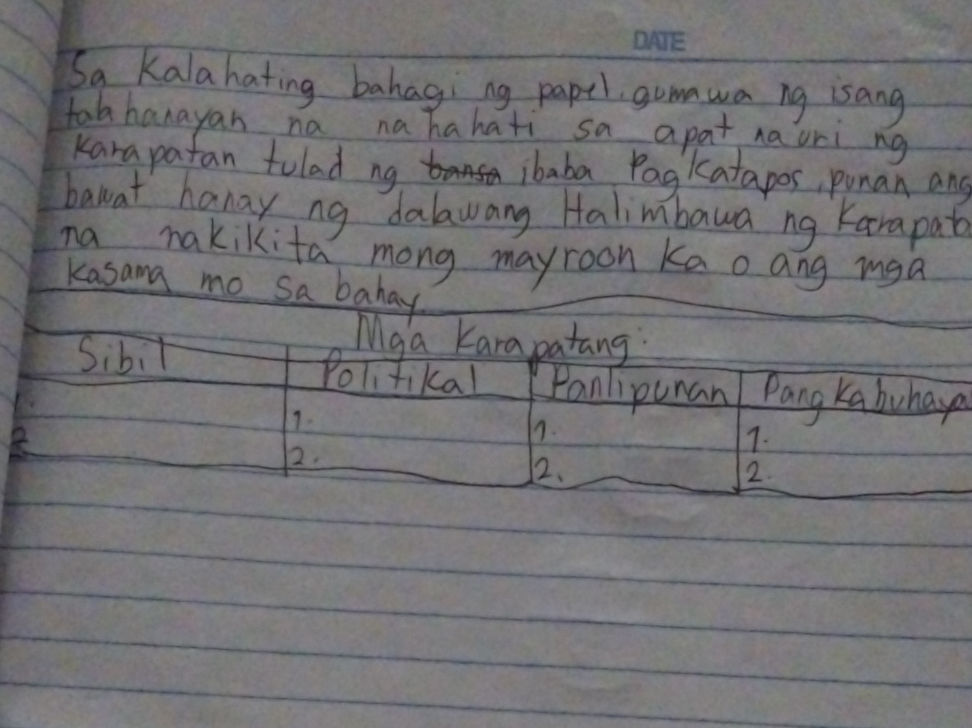 DATE
Sa Kalahating bahagi ng papel, gumawa ng isang
talahanayan na nahahati sa apat na uri ng
Karapatan tulad ng ibaba Pagkatapos, punan ang
bawat hanay ng dalawang Halimbawa ng Karapata
na nakikita mong mayroon ka o ang mga
kasama mo sa bahay.
Mga Karapatang:
Sibil Politikal Panlipunan Pangkabuhaya
1. 1. 1. 1.
2 2. 2. 2.